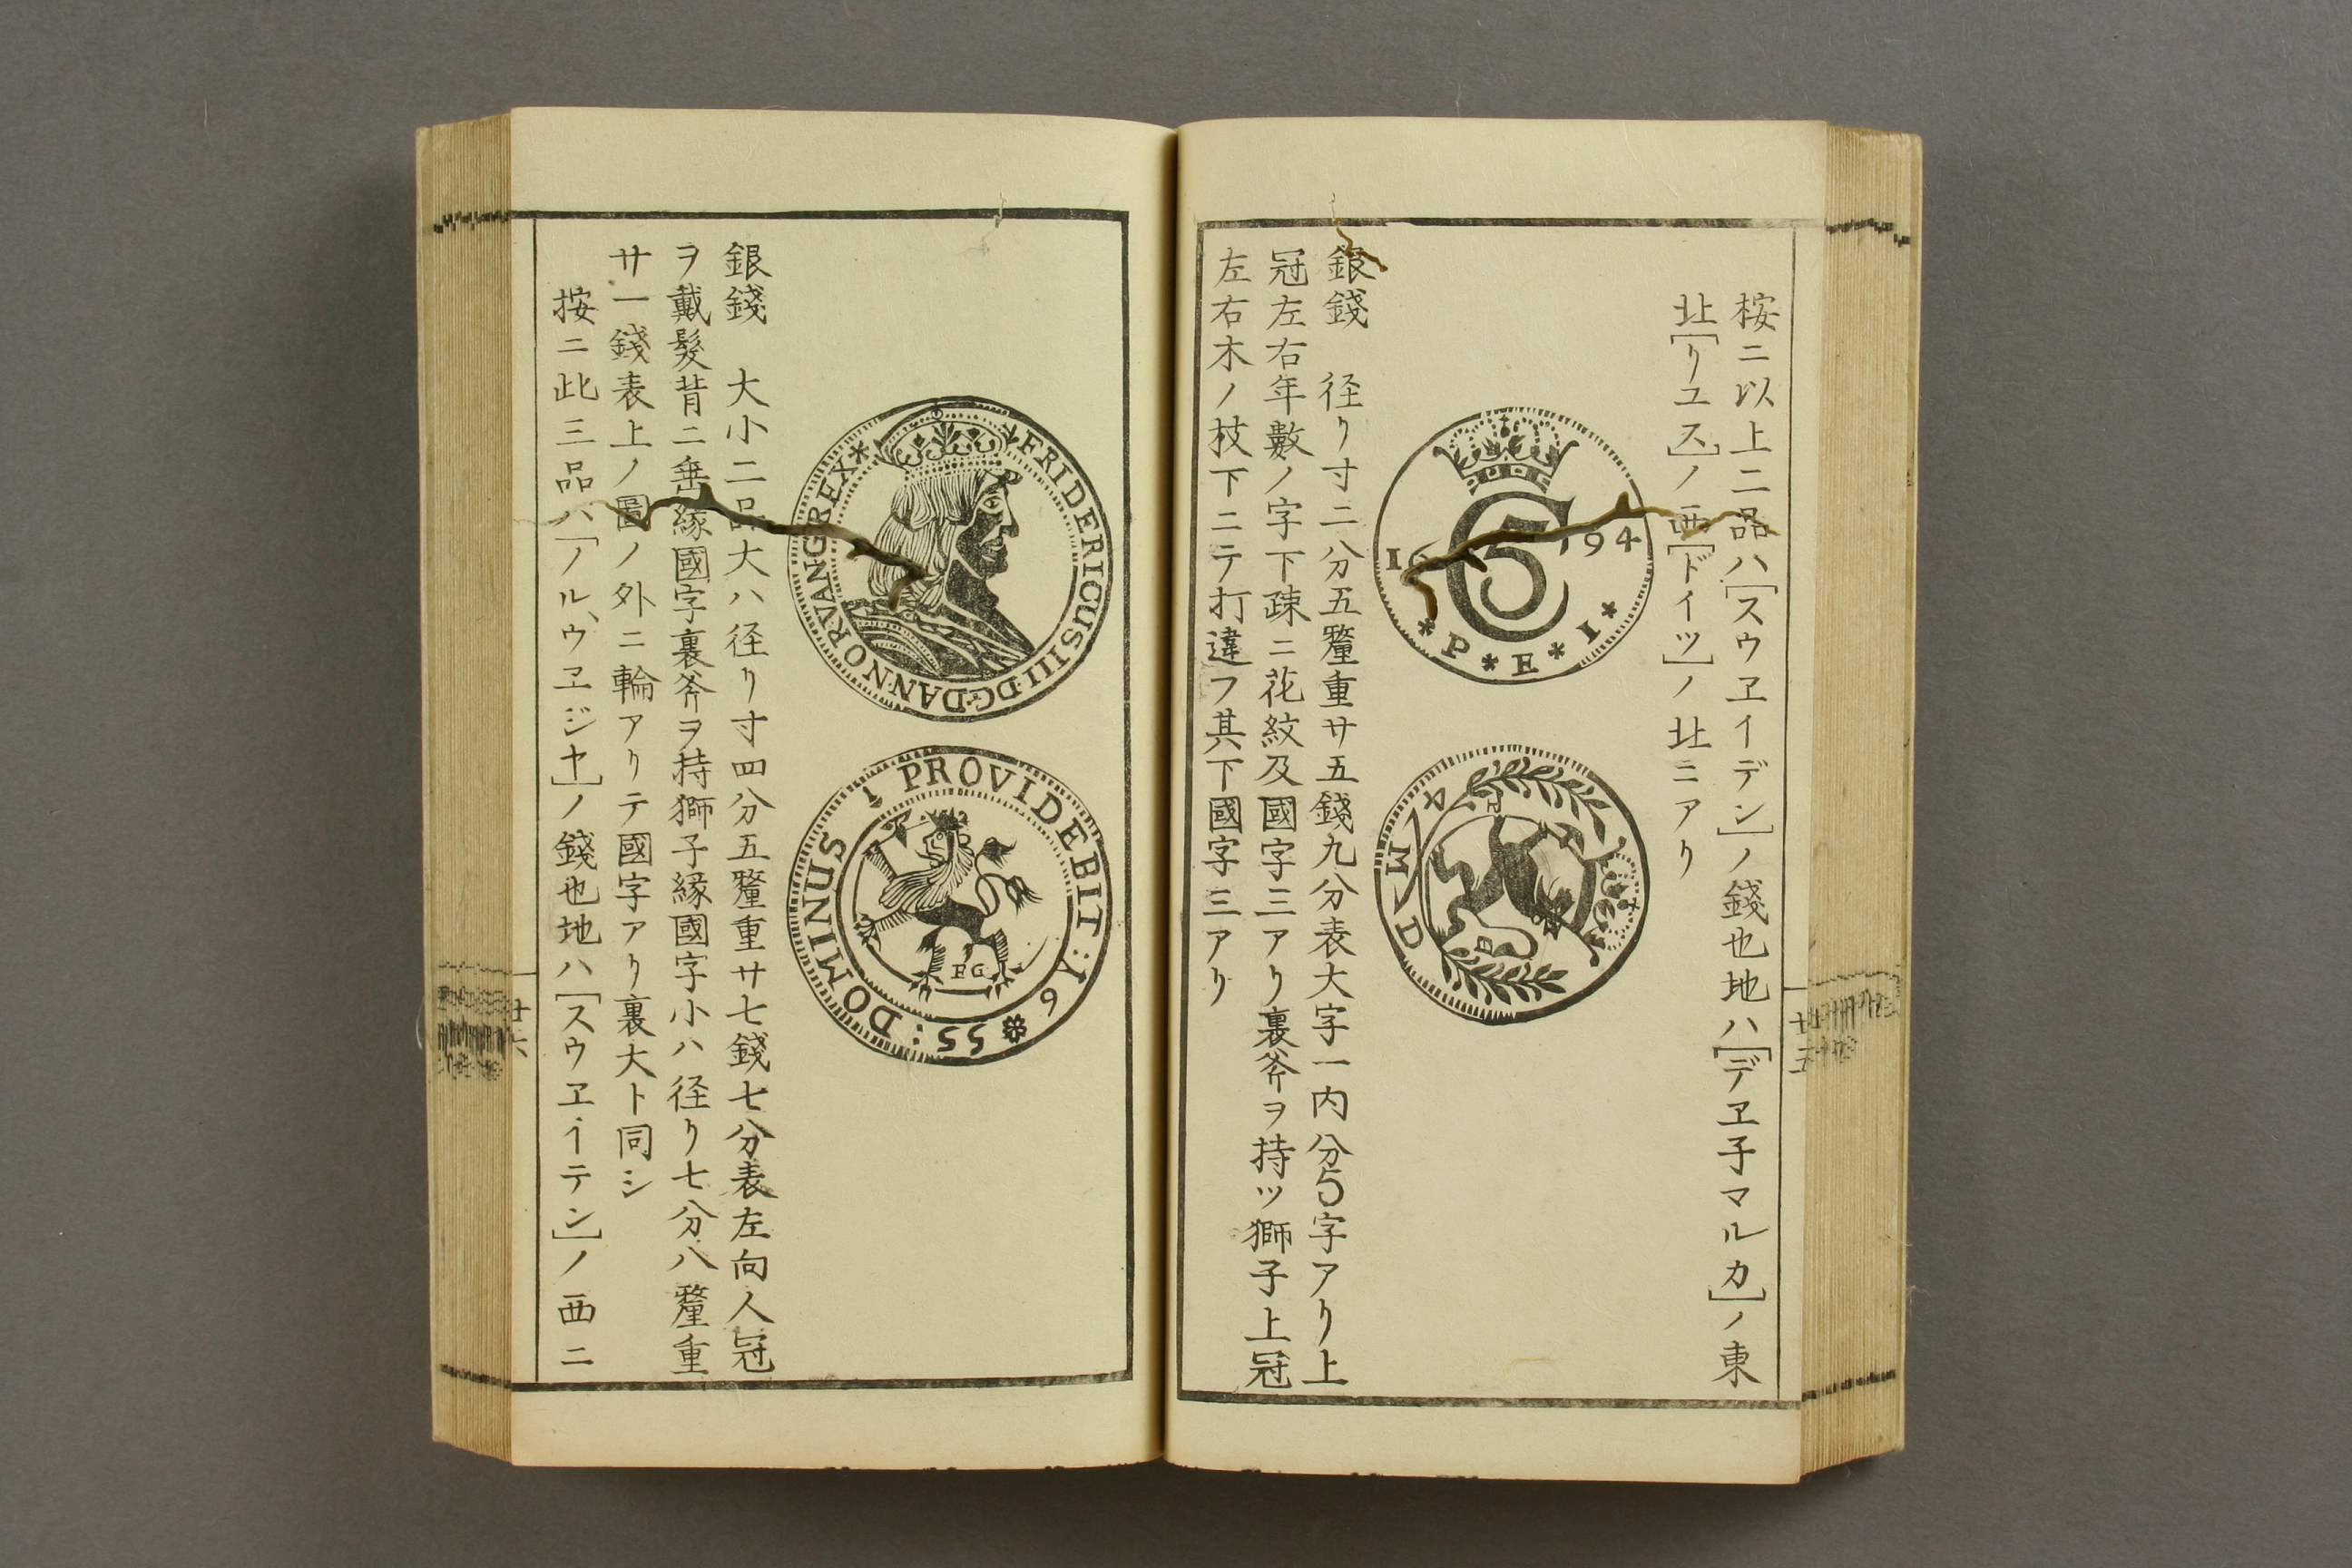 桉ニ以上二品ハ[スウヱイデン]ノ錢也地ハ[デヱ子マルカ]ノ東
北[リユス]ノ西[ドイツ]ノ北ニアリ
16 C5 94
*P*E*I*
4 M D
銀錢　径リ寸二分五釐重サ五錢九分表大字一内分5字アリ上
冠左右年數ノ字下疎ニ花紋及國字三アリ裏斧ヲ持ツ獅子上冠
左右木ノ枝下ニテ打違フ其下國字三アリ
廿五
*FRIDERICUS III·DG·DAN·NORVAN·G·REX*
DOMINUS I PROVIDEBIT : 16*55:
FG
銀錢　大小二品大ハ径リ寸四分五釐重サ七錢七分表左向人冠
ヲ戴髮背ニ垂緣國字裏斧ヲ持獅子緣國字小ハ径リ七分八釐重
サ一錢表上ノ圖ノ外ニ輪アリテ國字アリ裏大ト同シ
按ニ此三品ハ[ノル、ウヱジヤ]ノ錢也地ハ[スウヱイテン]ノ西ニ
廿六